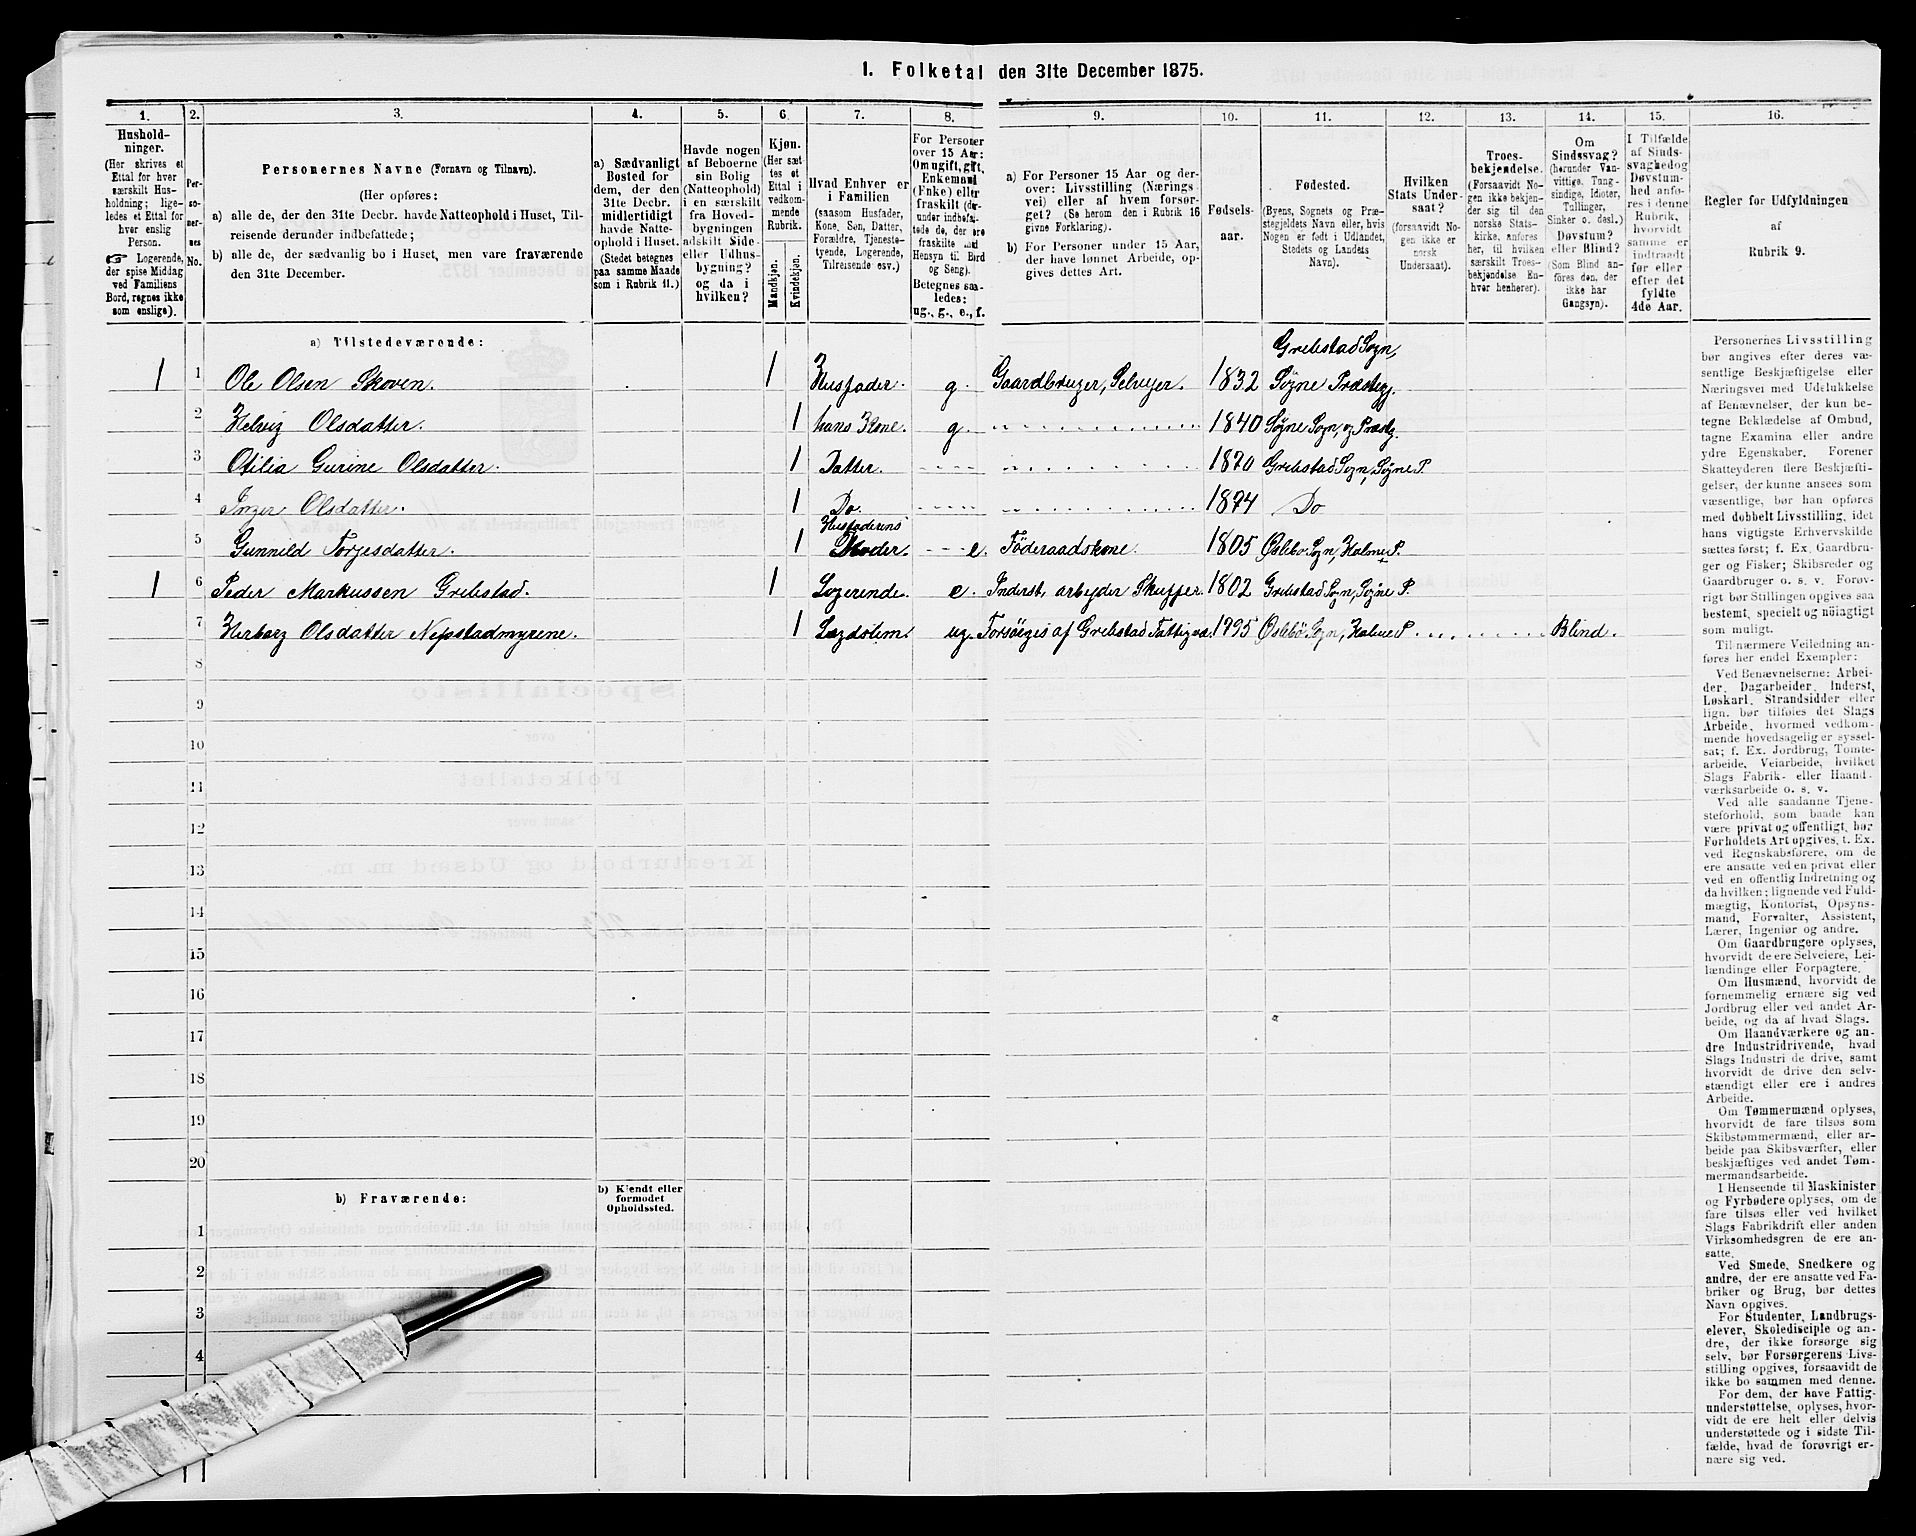 1. Folketal den 31te December 1875.
1.
2.
3.
4.
5.
6
7.
8.
9.
10.
11.
12.
13.
14.
15.
16.
Hushold-
ninger.
(Her skrives et
Ettal for hver
særskilt Hus-
holdning; lige-
ledes et Ettal for
hver enslig
Person.
☞ Logerende,
der spise Middag
ved Familiens
Bord, regnes ikke
som enslige).
Per-
so-
ner-
nes
No.
Personernes Navne (Fornavn og Tilnavn).
(Her opføres:
a) alle de, der den 31te Decbr. havde Natteophold i Huset, Til-
reisende derunder indbefattede;
b) alle de, der sædvanlig bo i Huset, men vare fraværende
den 31te December.
a) Sædvanligt
Bosted for
dem, der den
31te Decbr.
midlertidigt
havde Natte-
ophold i Huset.
(Stedet betegnes
paa samme Maade
som i Rubrik 11.)
Havde nogen
af Beboerne
sin Bolig
(Natteophold)
i en særskilt
fra Hoved-
bygningen
adskilt Side-
eller Udhus-
bygning?
og da i
hvilken?
Kjøn.
(Her sæt-
tes et
Ettal i
vedkom-
mende
Rubrik.
Mandkjøn.
Kvindekjøn.
Hvad Enhver er
i Familien
(saasom Husfader,
Kone, Søn, Datter,
Forældre, Tjeneste-
tyende, Logerende,
Tilreisende osv.)
For Personer
over 15 Aar:
Om ugift, gift,
Enkemand
(Enke) eller
fraskilt (der-
under indbefat-
tede de, der ere
fraskilte med
Hensyn til Bord
og Seng).
Betegnes saa-
ledes:
ug., g., e., f.
a) For Personer 15 Aar og der-
over: Livsstilling (Nærings-
vei) eller af hvem forsør-
get? (Se herom den i Rubrik 16
givne Forklaring).
b) For Personer under 15 Aar,
der have lønnet Arbeide, op-
gives dettes Art.
Fødsels-
aar.
Fødested.
(Byens, Sognets og Præ-
stegjeldets Navn eller, hvis
Nogen er født i Udlandet,
Stedets og Landets
Navn).
Hvilken
Stats Under-
saat?
(forsaavidt No-
gen ikke er
norsk
Undersaat).
Troes-
bekjendelse.
(Forsaavidt No-
gen ikke bekjen-
der sig til den
norske Stats-
kirke, anføres
her, til hvilken
særskilt Troes-
bekjendelse En-
hver henhører).
Om
Sindssvag?
(herunder Van-
vittige, Tung-
sindige, Idioter,
Tullinger,
Sinker o. desl.)
Døvstum?
eller Blind?
(Som Blind an-
føres den, der
ikke har
Gangsyn).
I Tilfælde
af Sinds-
svaghed og
Døvstum-
hed anfø-
res i denne
Rubrik,
hvorvidt
samme er
indtraadt
før eller
efter det
fyldte
4de Aar.
Regler for Udfyldningen
af
Rubrik 9.
a) Tilstedeværende:
1 1 Ole Olsen Skoven. 1 Husfader. g. Gaardbruger, Selveier. 1832 Grebstad Sogn, Søgne Præstegj.
2 Helvig Olsdatter. 1 hans Kone. g. 1840 Søgne Sogn, og Præstg.
3 Otilia Gurine Olsdatter. 1 Datter. 1870 Grebstad Sogn, Søgne P.
4 Inger Olsdatter. 1 Do. 1874 Do
5 Gunnild Torjesdatter. 1 Husfaderens Moder. e. Föderaadskone. 1805 Øslebo Sogn, Holme P.
1 6 Peder Markussen Grebstad. 1 Logerende. e. Inderst, arbeyder Skupper. 1802 Grebstad Sogn, Søgne P.
7 Herborg Olsdatter 1 Lægdslem. ug. Forsörges af Grebstad Fattigvæ. 1795 Øslebö Sogn, Holme P. Blind.
8
9
10
11
12
13
14
15
16
17
18
19
20
b) Fraværende:
b) Kjendt eller
formodet
Opholdssted.
1
2
3
4
Personernes Livsstilling
bør angives efter deres væ-
sentlige Beskjæftigelse eller
Næringsvei med Udelukkelse
af Benævnelser, der kun be-
tegne Beklædelse af Ombud,
tagne Examina eller andre
ydre Egenskaber. Forener
Skatteyderen flere Beskjæfti-
gelser, der kunne ansees som
væsentlige, bør han opføres
med dobbelt Livsstilling, idet
hans vigtigste Erhvervskilde
sættes først; f. Ex. Gaardbru-
ger og Fisker; Skibsreder og
Gaardbruger o. s. v. Forøv-
rigt bør Stillingen opgives saa
bestemt, specielt og nöiagtigt
som muligt.
Til nærmere Veiledning an-
føres her endel Exempler:
Ved Benævnelserne: Arbei-
der, Dagarbeider, Inderst,
Løskarl, Strandsidder eller
lign. bør tilføies det Slags
Arbeide, hvormed vedkom-
mende hovedsagelig er syssel-
sat; f. Ex. Jordbrug, Tomte-
arbeide, Veiarbeide, hvilket
Slags Fabrik- eller Haand-
værksarbeide o. s. v.
Ved alle saadanne Tjene-
steforhold, som baade kan
være privat og offentligt, bør
Forholdets Art opgives, t. Ex.
ved Regnskabsførere, om de
ere ansatte ved en privat eller
ved en offentlig Indretning og
da hvilken; lignende ved Fuld-
mægtig, Kontorist, Opsyns-
mand, Forvalter, Assistent,
Lærer, Ingeniør og andre.
Om Gaardbrugere oplyses,
hvorvidt de ere Selveiere, Lei-
lændinge eller Forpagtere.
Om Husmænd, hvorvidt de
fornemmelig ernære sig ved
Jordbrug eller ved andet Ar-
beide, og da af hvad Slags.
Om Haandværkere og an-
dre Industridrivende, hvad
Slags Industri de drive, samt
hvorvidt de drive den selv-
stændigt eller ere i andres
Arbeide.
Om Tømmermænd oplyses,
hvorvidt de fare tilsøs som
Skibstømmermænd, eller ar-
beide paa Skibsværfter, eller
beskjæftiges ved andet Tøm-
mermandsarbeide.
I Henseende til Maskinister
og Fyrbødere oplyses, om de
fare tilsøs eller ved hvilket
Slags Fabrikdrift eller anden
Virksomhedsgren de ere an-
satte.
Ved Smede, Snedkere og
andre, der ere ansatte ved Fa-
briker og Brug, bør dettes
Navn opgives.
For Studenter, Landbrugs-
elever, Skoledisciple og an-
dre, der ikke forsørge sig
selv, bør Forsørgerens Livs-
stilling opgives, forsaavidt de
ikke bo sammen med denne.
For dem, der have Fattig-
understøttelse, oplyses, hvor-
vidt de ere helt eller delvis
understøttede og i sidste Til-
fælde, hvad de forøvrigt er-
nære sig ved.